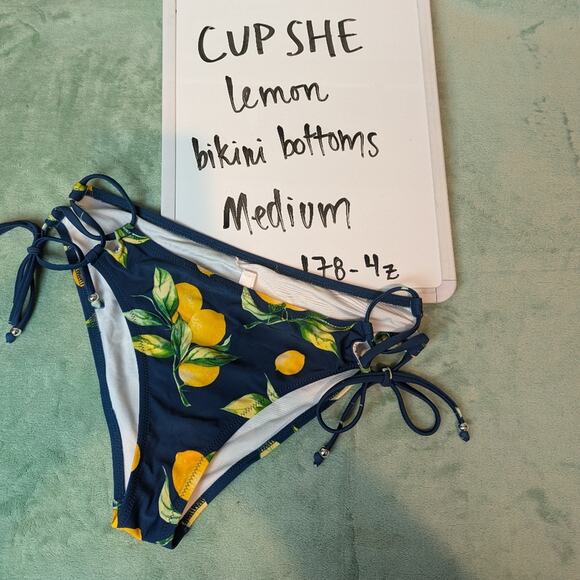 CUP SHE
lemon
bikini bottoms
Medium
178-4z